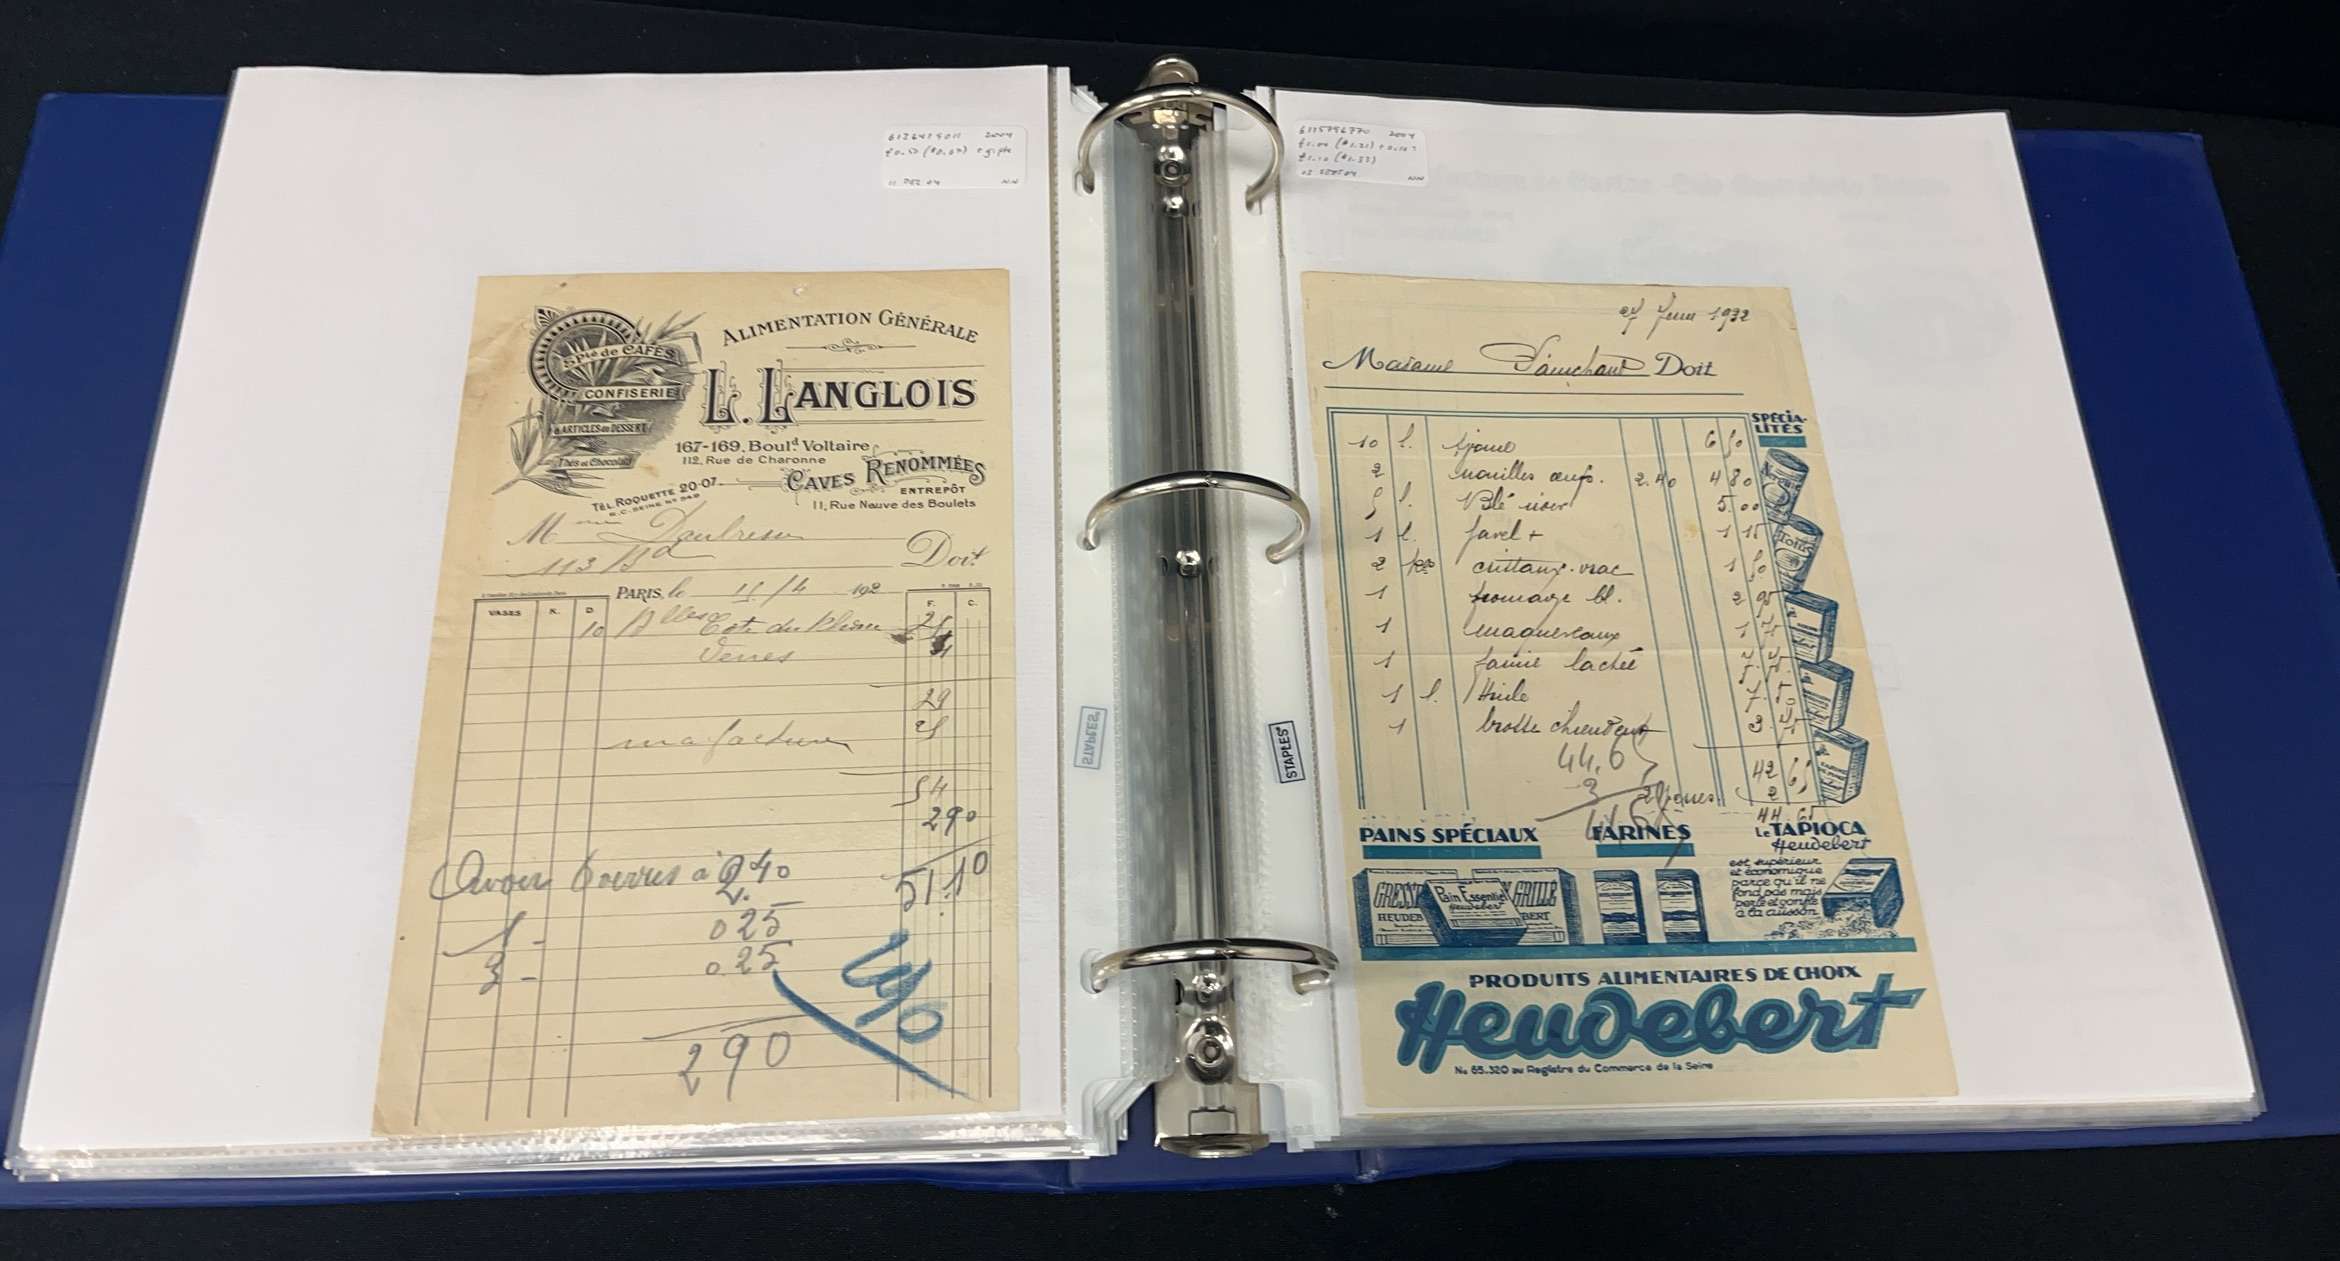 2004
11 DEC 04
NN
ALIMENTATION GÉNÉRALE
Spté de CAFÉS
CONFISERIE
& ARTICLES de DESSERT
Thés et Chocolats
L. LANGLOIS
167-169, Boul.d Voltaire
112, Rue de Charonne
CAVES RENOMMÉES
ENTREPÔT
11, Rue Neuve des Boulets
TÉL. ROQUETTE 20-07
R.C. SEINE No
Mme
113 Bd
Doit
PARIS, le 15/4 192
VASES K. D. F. C.
10 Blles Cote du Rhone 25
Verres 4
29
ma facture 25
54
290
51.10
Avoir 6 verres à 0.40 2.40
1 - 025
3 - 0.25
290
STAPLES
STAPLES
6115796770 2004
NN
27 1932
Madame Doit
SPÉCIA-
LITÉS
10 l. 6 50
2 nouilles œufs. 2.40 4 80
5 l. Blé noir 5.00
1 l. Javel + 1 15
2 cristaux vrac 1 50
1 fromage bl. 2 95
1 maquereaux 1 75
1 farine lactée 7.75
1 l. Huile 7.50
1 brosse chiendent 3.75
42 65
2
44.65
44,6
3
PAINS SPÉCIAUX
FARINES
Le TAPIOCA
Heudebert
est supérieur
et économique
parce qu'il ne
fond pas mais
perle et gonfle
à la cuisson
GRESSINS
HEUDEBERT
Pain Essentiel
Heudebert
GRILLÉ
PRODUITS ALIMENTAIRES DE CHOIX
Heudebert
No 65.320 au Registre du Commerce de la Seine